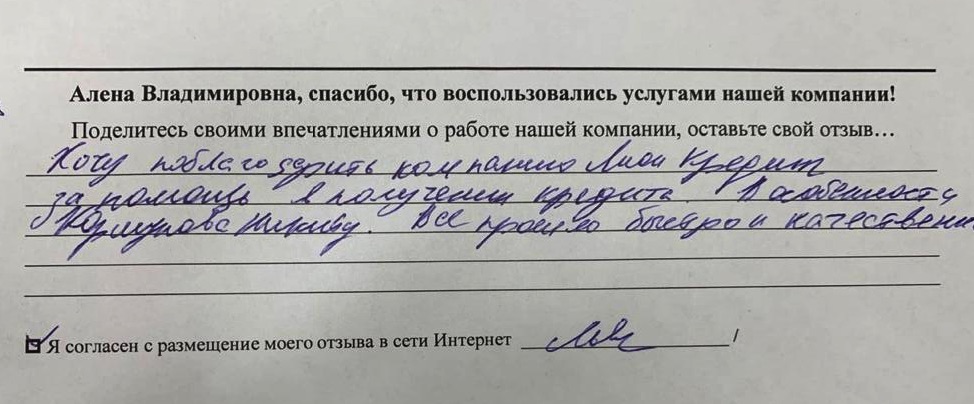 Алена Владимировна, спасибо, что воспользовались услугами нашей компании!
Поделитесь своими впечатлениями о работе нашей компании, оставьте свой отзыв…
Хочу поблагодарить компанию Лион Кредит
за помощь в получении кредита. В особенности
Никиту. Все прошло быстро и качественн
Я согласен с размещение моего отзыва в сети Интернет /